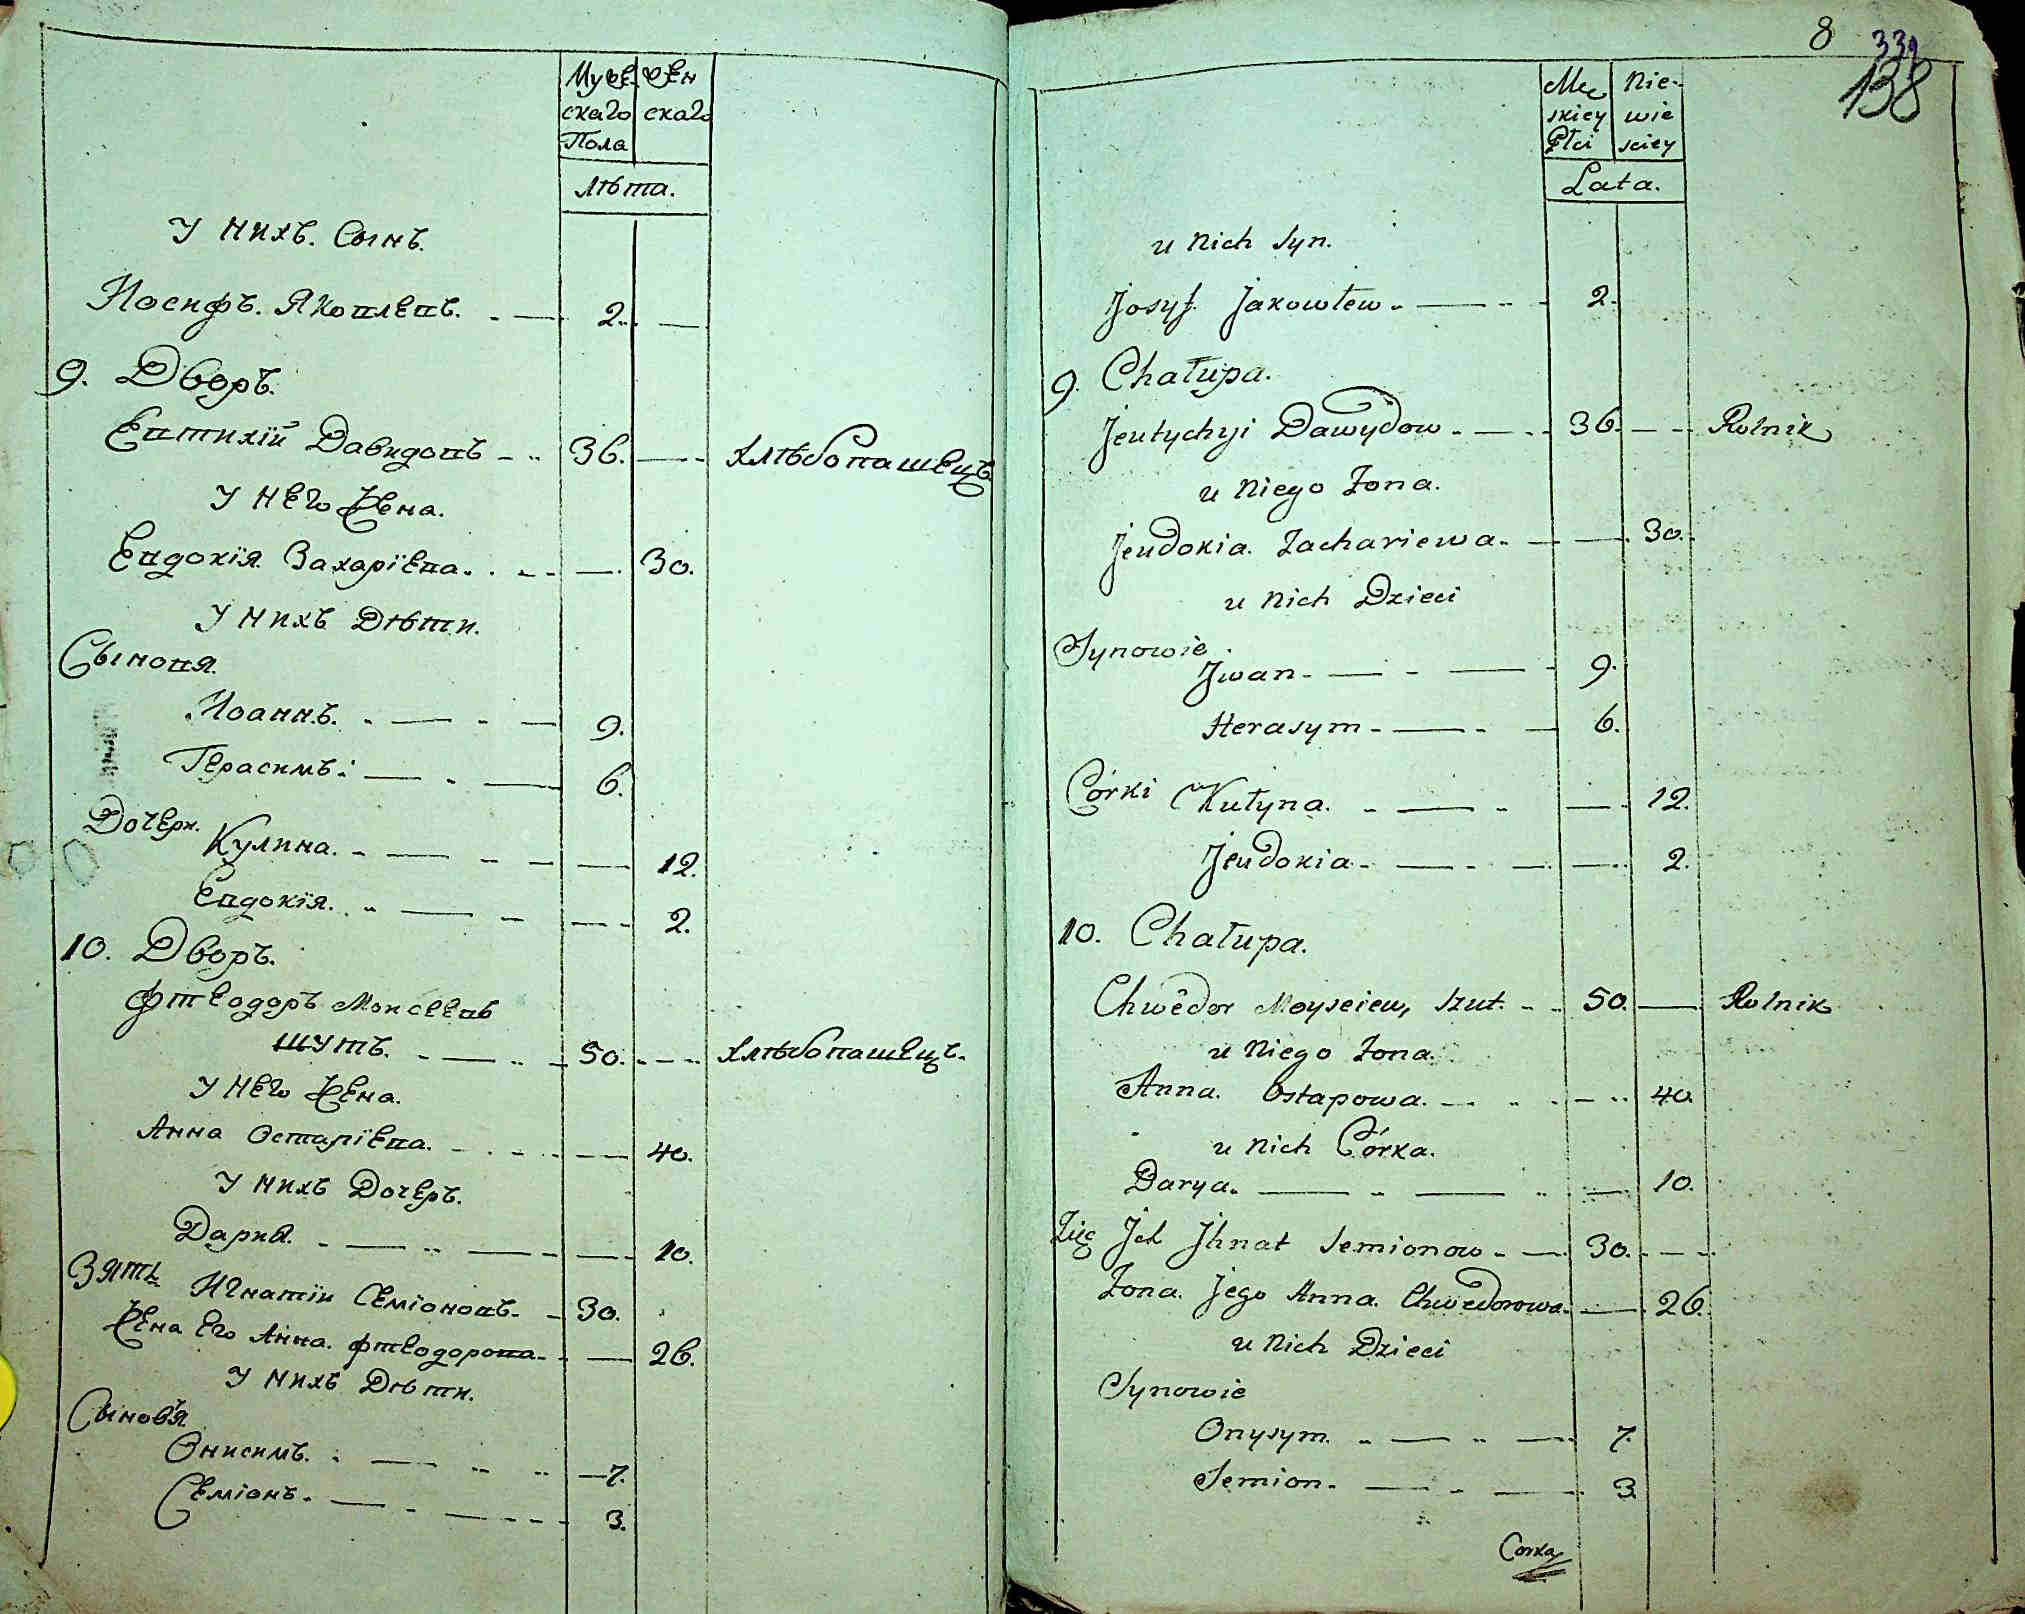 Мужескаго Пола
Женскаго
Лѣта.
У нихъ. Сынъ.
Иосифъ. Яковлевъ. 2.
9. Дворъ.
Евтихій Давидовъ 36. хлѣбопашецъ
У него Жена.
Евдокія Захаріева. 30.
У нихъ Дѣти.
Сыновя.
Иоаннъ. 9.
Герасимъ. 6.
Дочери.
Кулина. 12.
Евдокія. 2.
10. Дворъ.
Фтеодоръ Моисеевъ
шутъ. 50. хлѣбопашецъ.
У него Жена.
Анна Остапіева. 40.
У нихъ Дочеръ.
Дария. 10.
Зять Игнатіи Семіоновъ. 30.
Жена Его Анна. Фтеодорова. 26.
У нихъ Дѣти.
Сыновъя
Онисимъ. 7.
Семіонъ. 3.
8
339
138
Męskiey Płci
Niewieściey
Lata.
u Nich Syn.
Josyf. Jakowłew. 2.
9. Chałupa.
Jeutychyi Dawydow 36. Rolnik
u Niego Żona.
Jeudokia. Zachariewa. 30.
u Nich Dzieci
Synowie
Jwan 9.
Herasym 6.
Córki Kułyna. 12.
Jeudokia 2.
10. Chałupa.
Chwêdor Moyseiew, Szut. 50. Rolnik
u Niego Żona.
Anna. Ostapowa. 40.
u Nich Córka.
Darya. 10.
Zięć Jch Jhnat Semionow 30.
Żona. Jego Anna. Chwedorowa. 26.
u Nich Dzieci
Synowie
Onysym. 7.
Semion. 3.
Corka